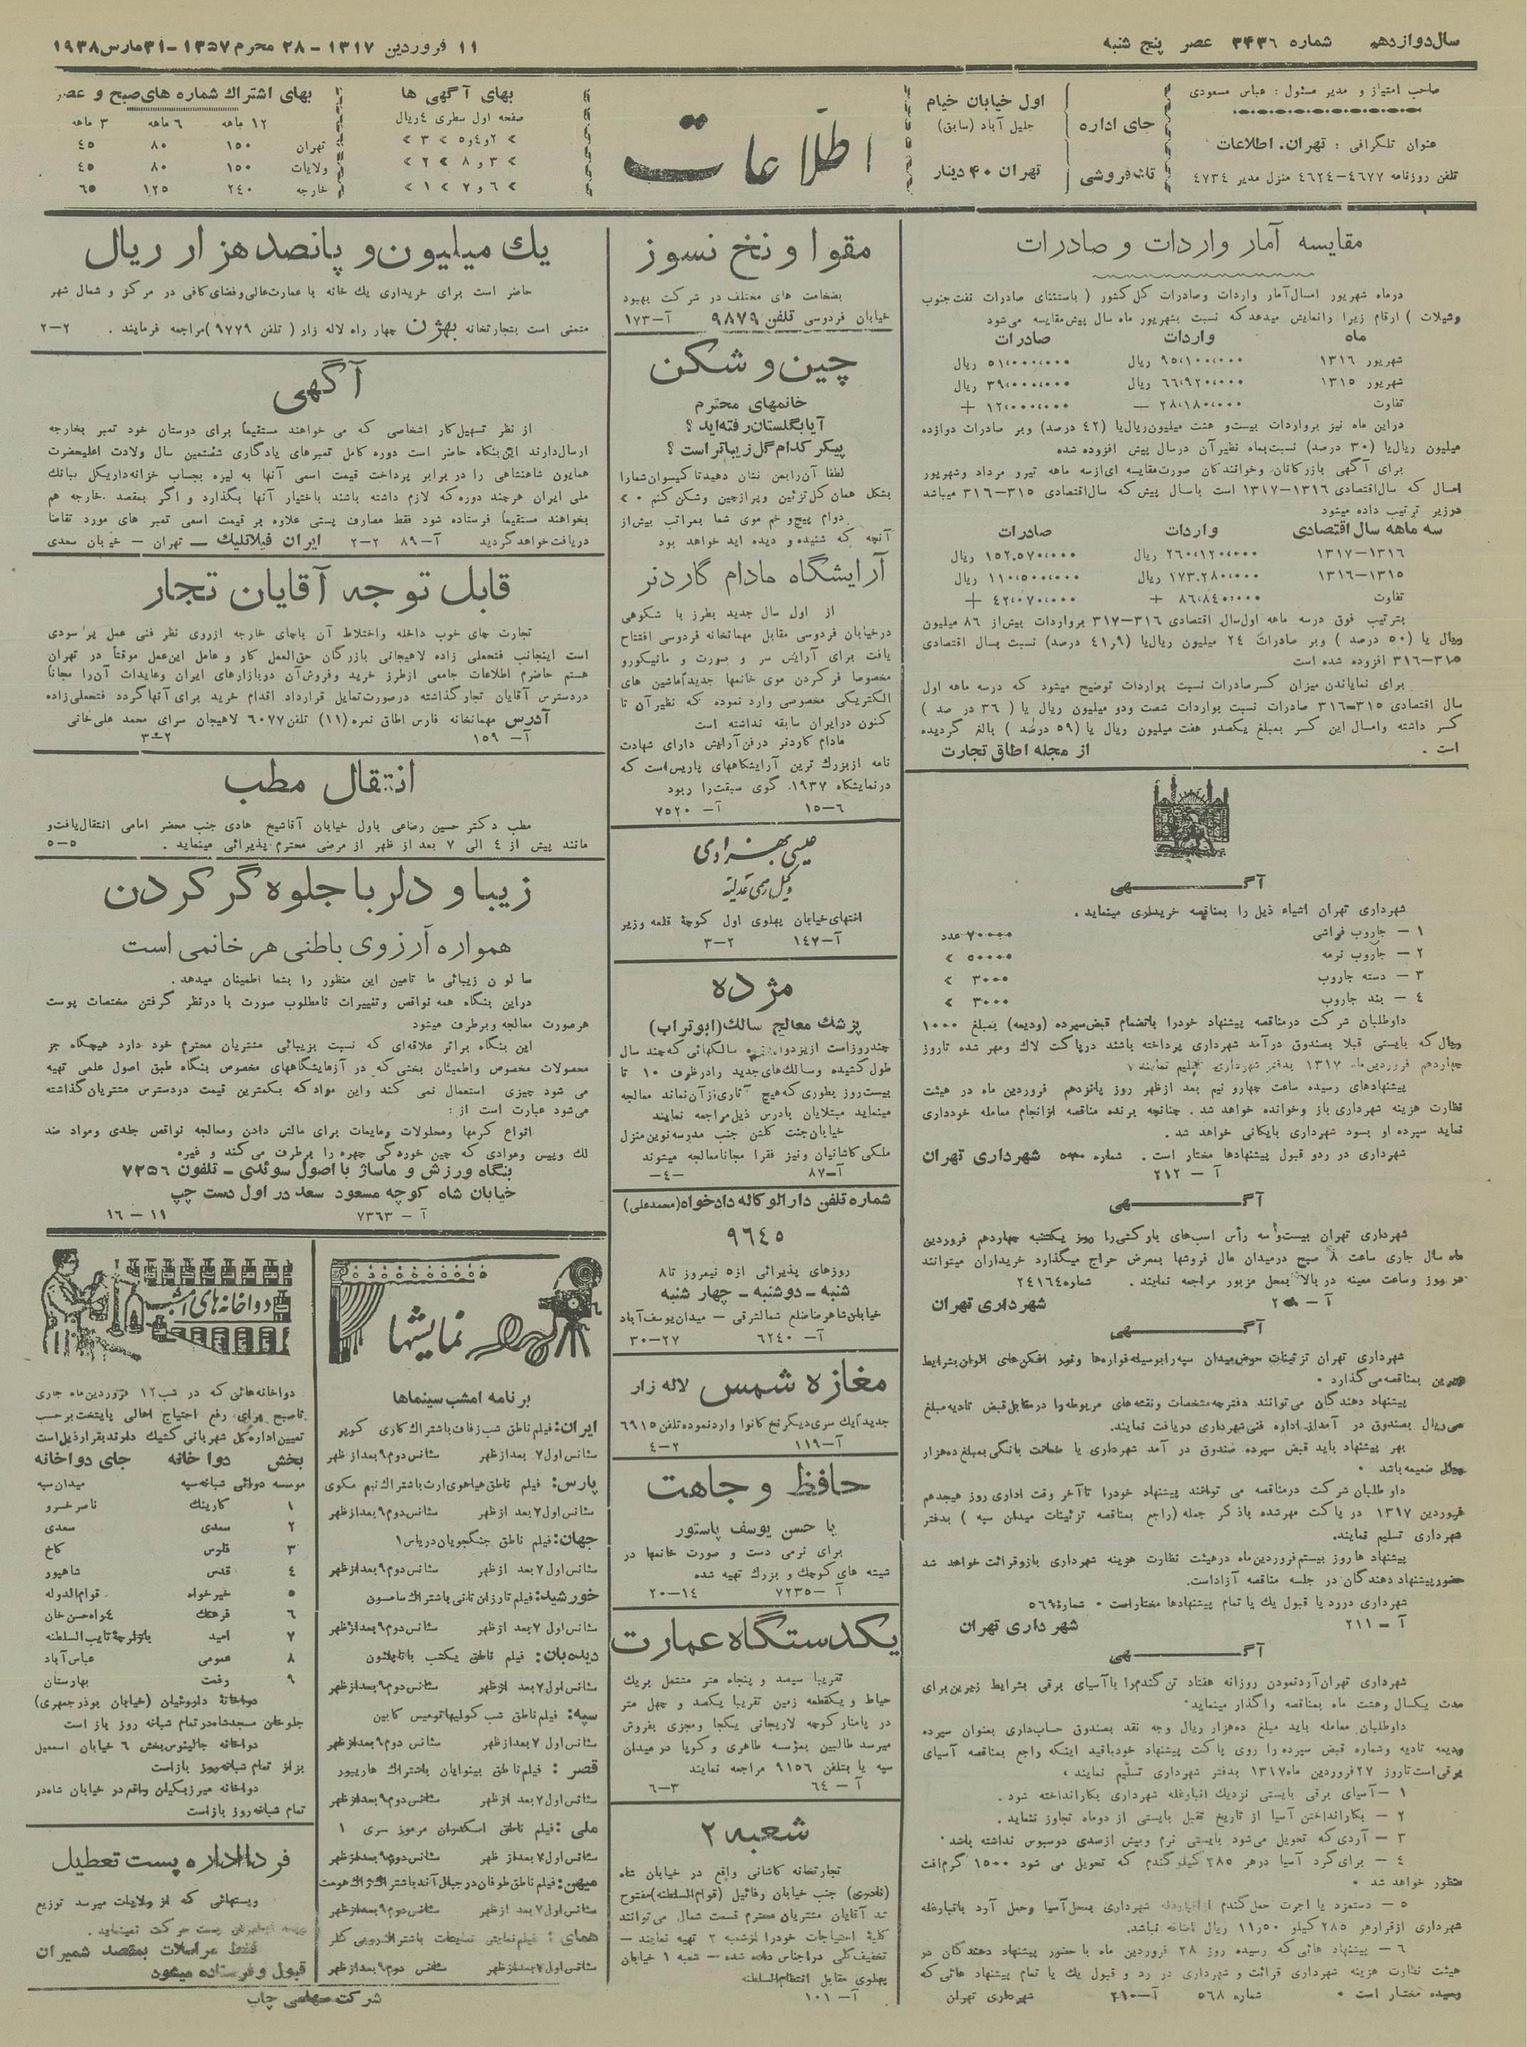 سال دوازدهم شماره ۳۴۳۶ عصر پنج شنبه
۱۱ فروردین ۱۳۱۷ - ۲۸ محرم ۱۳۵۷ - ۳۱ مارس ۱۹۳۸
صاحب امتیاز و مدیر مسئول : عباس مسعودی
عنوان تلگرافی : تهران، اطلاعات
تلفن روزنامه ۴۶۷۷-۴۶۲۴ منزل مدیر ۴۷۳۴
جای اداره
اول خیابان خیام
جلیل آباد (سابق)
تك فروشی
تهران ۴۰ دینار
اطلاعات
بهای آگهی ها
صفحه اول سطری ۴ ریال
« ۲ و ۴ و ۵ « ۳ «
« ۳ و ۸ « ۲ «
« ۶ و ۷ « ۱ «
بهای اشتراك شماره های صبح و عصر
۱۲ ماهه ۶ ماهه ۳ ماهه
تهران ۱۵۰ ۸۰ ۴۵
ولایات ۱۵۰ ۸۰ ۴۵
خارجه ۲۴۰ ۱۲۵ ۶۵
مقایسه آمار واردات و صادرات
درماه شهریور امسال آمار واردات وصادرات کل کشور ( باستثنای صادرات نفت جنوب
وشیلات ) ارقام زیرا رانمایش میدهد که نسبت بشهریور ماه سال پیش مقایسه می شود
ماه واردات صادرات
شهریور ۱۳۱۶ ۹۵،۱۰۰،۰۰۰ ریال ۵۱،۰۰۰،۰۰۰ ریال
شهریور ۱۳۱۵ ۶۶،۹۲۰،۰۰۰ ریال ۳۹،۰۰۰،۰۰۰ ریال
تفاوت ۲۸،۱۸۰،۰۰۰ — ۱۲،۰۰۰،۰۰۰ +
دراین ماه نیز برواردات بیست و هشت میلیون ریال یا (۴۲ درصد) وبر صادرات دوازده
میلیون ریال یا (۳۰ درصد) نسبت بماه نظیر آن درسال پیش افزوده شده
برای آگهی بازرگانان وخوانندگان صورت مقایسه ای ازسه ماهه تیرو مرداد وشهریور
امسال که سال اقتصادی ۱۳۱۶-۱۳۱۷ است باسال پیش که سال اقتصادی ۳۱۵-۳۱۶ میباشد
درزیر ترتیب داده میشود
سه ماهه سال اقتصادی واردات صادرات
۱۳۱۶-۱۳۱۷ ۲۶۰،۱۲۰،۰۰۰ ریال ۱۵۲،۵۷۰،۰۰۰ ریال
۱۳۱۵-۱۳۱۶ ۱۷۳،۲۸۰،۰۰۰ ریال ۱۱۰،۵۰۰،۰۰۰ ریال
تفاوت ۸۶،۸۴۰،۰۰۰ + ۴۲،۰۷۰،۰۰۰ +
بترتیب فوق درسه ماهه اول سال اقتصادی ۳۱۶-۳۱۷ برواردات بیش از ۸۶ میلیون
ریال یا (۵۰ درصد ) وبر صادرات ۲۴ میلیون ریال یا (۴۱٫۹ درصد) نسبت بسال اقتصادی
۳۱۵-۳۱۶ افزوده شده است
برای نمایاندن میزان کسر صادرات نسبت بواردات توضیح میشود که درسه ماهه اول
سال اقتصادی ۳۱۵-۳۱۶ صادرات نسبت بواردات شصت ودو میلیون ریال یا ( ۳۶ در صد )
کسر داشته وامسال این کسر بمبلغ یکصدو هفت میلیون ریال یا (۵۹ درصد ) بالغ گردیده
است . از مجله اطاق تجارت
آگهی
شهرداری تهران اشیاء ذیل را بمناقصه خریداری مینماید .
۱ - جاروب فراشی ۷۰۰۰۰ عدد
۲ - جاروب نرمه ۵۰۰۰۰ «
۳ - دسته جاروب ۳۰۰۰ «
۴ - بند جاروب ۳۰۰۰ «
داوطلبان شرکت درمناقصه پیشنهاد خودرا بانضمام قبض سپرده (ودیعه) بمبلغ ۱۰۰۰
ریال که بایستی قبلا بصندوق درآمد شهرداری پرداخته باشند درپاکت لاك ومهر شده تاروز
چهاردهم فروردین ماه ۱۳۱۷ بدفتر شهرداری تسلیم نمایند .
پیشنهادهای رسیده ساعت چهارو نیم بعد ازظهر روز پانزدهم فروردین ماه در هیئت
نظارت هزینه شهرداری باز وخوانده خواهد شد . چنانچه برنده مناقصه ازانجام معامله خودداری
نماید سپرده او بسود شهرداری بایگانی خواهد شد .
شهرداری در ردو قبول پیشنهادها مختار است . شهرداری تهران
آ - ۲۱۲
آگهی
شهرداری تهران بیست وسه رأس اسب های بارکشی را روز یکشنبه چهاردهم فروردین
ماه سال جاری ساعت ۸ صبح درمیدان مال فروشها بمعرض حراج میگذارد خریداران میتوانند
در روز وساعت معینه در بالا بمحل مزبور مراجعه نمایند . شماره ۲۴۱۶۴
شهرداری تهران
آگهی
شهرداری تهران تزئینات حوض میدان سپه رابوسیله فوارهها ونور افکن های الوان بشرایط
زیرین بمناقصه می گذارد .
پیشنهاد دهندگان می توانند دفترچه مشخصات ونقشه های مربوطه را درمقابل قبض تادیه مبلغ
سی ریال بصندوق در آمد از اداره فنی شهرداری دریافت نمایند.
بهر پیشنهاد باید قبض سپرده صندوق در آمد شهرداری یا ضمانت بانگی بمبلغ ده هزار
ریال ضمیمه باشد .
داو طلبان شرکت درمناقصه می توانند پیشنهاد خودرا تاآخر وقت اداری روز هیجدهم
فروردین ۱۳۱۷ در پاکت مهرشده باذکر جمله (راجع بمناقصه تزئینات میدان سپه ) بدفتر
شهرداری تسلیم نمایند.
پیشنهاد ها روز بیستم فروردین ماه درهیئت نظارت هزینه شهرداری بازوقرائت خواهد شد
حضور پیشنهاد دهندگان در جلسه مناقصه آزاداست.
شهرداری دررد یا قبول یك یا تمام پیشنهادها مختاراست . شماره ۵۶۹
آ - ۲۱۱ شهرداری تهران
آگهی
شهرداری تهران آردنمودن روزانه هفتاد تن گندم را باآسیای برقی بشرایط زیرین برای
مدت یکسال وهشت ماه بمناقصه واگذار مینماید.
داوطلبان معامله باید مبلغ ده هزار ریال وجه نقد بصندوق حساب داری بعنوان سپرده
ودیعه تادیه وشماره قبض سپرده را روی پاکت پیشنهاد خود باقید اینکه راجع بمناقصه آسیای
برقی است تاروز ۲۷ فروردین ماه ۱۳۱۷ بدفتر شهرداری تسلیم نمایند .
۱ - آسیای برقی بایستی نزدیك انبارغله شهرداری بکارانداخته شود .
۲ - بکارانداختن آسیا از تاریخ تقبل بایستی از دوماه تجاوز ننماید .
۳ - آردی که تحویل می شود بایستی نرم وبیش ازصدی دوسبوس نداشته باشد .
۴ - برای گرد آسیا درهر ۲۸۵ کیلو گندم که تحویل می شود ۱۵۰۰ گرم افت
منظور خواهد شد .
۵ - دستمزد یا اجرت حمل گندم ازانبارغله شهرداری بمحل آسیا وحمل آرد بانبارغله
شهرداری ازقرارهر ۲۸۵ کیلو ۱۱٫۵۰ ریال اضافه نباشد.
۶ - پیشنهاد هائی که رسیده روز ۲۸ فروردین ماه با حضور پیشنهاد دهندگان در
هیئت نظارت هزینه شهرداری قرائت و شهرداری در رد و قبول یك یا تمام پیشنهاد هائی که
رسیده مختار است . شماره ۵۶۸ آ-۲۱۰ شهرداری تهران
مقوا و نخ نسوز
بضخامت های مختلف در شرکت بهبود
خیابان فردوسی تلفن ۹۸۷۹ آ-۱۷۳
چین و شکن
خانمهای محترم
آیا بگلستان رفته اید ؟
پیکر کدام گل زیباتر است ؟
لطفا آن رابمن نشان دهید تا گیسوان شمارا
بشکل همان گل تزئین وپرازچین وشکن کنم
دوام پیچ و خم موی شما بمراتب بیش از
آنچه که شنیده و دیده اید خواهد بود
آرایشگاه مادام گاردنر
از اول سال جدید بطرز با شکوهی
درخیابان فردوسی مقابل مهمانخانه فردوسی افتتاح
یافت برای آرایش سر و صورت و مانیکورو
مخصوصا فرکردن موی خانمها جدیدا ماشین های
الکتریکی مخصوصی وارد نموده که نظیر آن تا
کنون درایران سابقه نداشته است
مادام گاردنر درفن آرایش دارای شهادت
نامه ازبزرك ترین آرایشگاههای پاریس است که
درنمایشگاه ۱۹۳۷ گوی سبقت را ربود
۶-۱۵ آ- ۷۵۲۰
عیسی بهزادی
وکیل رسمی عدلیه
انتهای خیابان پهلوی اول کوچۀ قلعه وزیر
آ-۱۴۷ ۲-۳
مژده
پزشك معالج سالك (ابوتراب)
چندروزاست ازیزد سالکهائی که چند سال
طول کشیده وسالك های جدید رادرظرف ۱۰ تا
بیست روز بطوری که هیچ آثاری ازآن نماند معالجه
مینماید مبتلایان بادرس ذیل مراجعه نمایند
خیابان جنت گلشن جنب مدرسه نوین منزل
ملکی کاشانیان ونیز فقرا مجانا معالجه میشوند
آ-۸۷ -۴-
شماره تلفن دارالوکاله دادخواه (محمدعلی)
۹۶۴۵
روزهای پذیرائی از ۵ نیمروز تا ۸
شنبه - دوشنبه - چهار شنبه
خیابان شاهرضا ضلع شمالشرقی - میدان یوسف آباد
آ- ۶۲۴۰ ۲۷-۳۰
مغازه شمس لاله زار
جدیدا یك سری دیگر نخ کانوا وارد نموده تلفن ۶۹۱۵
آ-۱۱۹ ۲-۴
حافظ وجاهت
یا حسن یوسف پاستور
برای نرمی دست و صورت خانمها در
شیشه های کوچك و بزرك تهیه شده
آ -۷۲۳۵ ۱۴-۲۰
یکدستگاه عمارت
تقریبا سیصد و پنجاه متر مشتمل بریك
حیاط و یکقطعه زمین تقریبا یکصد و چهل متر
در پامنار کوچه لاریجانی یکجا ومجزی بفروش
میرسد طالبین بمؤسسه طاهری و کوپا درمیدان
سپه یا بتلفن ۹۱۵۶ مراجعه نمایند
آ - ۶۴ ۳-۶
شعبه ۲
تجارتخانه کاشانی واقع در خیابان شاه
(نادری) جنب خیابان رفائیل (قوام السلطنه) مفتوح
شد آقایان مشتریان محترم قسمت شمال می توانند
کلیۀ احتیاجات خودرا ازشعبه ۲ تهیه نمایند -
تخفیف کلی دراجناس داده شده - شعبه ۱ خیابان
پهلوی مقابل انتظام السلطنه
آ- ۱۰۱
یك میلیون و پانصد هزار ریال
حاضر است برای خریداری یك خانه با عمارت عالی و فضای کافی در مرکز و شمال شهر
متمنی است بتجارتخانه بهژن چهار راه لاله زار ( تلفن ۹۷۷۹) مراجعه فرمایند . ۲-۲
آگهی
از نظر تسهیل کار اشخاصی که می خواهند مستقیماً برای دوستان خود تمبر بخارجه
ارسال دارند این بنگاه حاضر است دوره کامل تمبرهای یادگاری شصتمین سال ولادت اعلیحضرت
همایون شاهنشاهی را در برابر پرداخت قیمت اسمی آنها به لیره بحساب خزانه داریکل ببانك
ملی ایران هرچند دوره که لازم داشته باشند باختیار آنها بگذارد و اگر بمقصد خارجه هم
بخواهند مستقیماً فرستاده شود فقط مصارف پستی علاوه بر قیمت اسمی تمبر های مورد تقاضا
دریافت خواهد گردید آ-۸۹ ۲-۲ ایران فیلاتلیك - تهران - خیابان سعدی
قابل توجه آقایان تجار
تجارت چای خوب داخله واختلاط آن باچای خارجه ازروی نظر فنی عمل پرسودی
است اینجانب فتحعلی زاده لاهیجانی بازرگان حق العمل کار و عامل این عمل موقتاً در تهران
هستم حاضرم اطلاعات جامعی ازطرز خرید وفروش آن دوبازارهای ایران وعایدات آن را مجاناً
دردسترس آقایان تجار گذاشته درصورت تمایل قرارداد اقدام خرید برای آنها گردد فتحعلی زاده
آدرس مهمانخانه فارس اطاق نمره (۱۱) تلفن ۶۰۷۷ لاهیجان سرای محمد علی خانی
آ- ۱۵۹ ۲-۳
انتقال مطب
مطب دکتر حسین رضاعی باول خیابان آقاشیخ هادی جنب محضر امامی انتقال یافت و
مانند پیش از ۴ الی ۷ بعد از ظهر از مرضی محترم پذیرائی مینماید . ۵-۵
زیبا و دلربا جلوه گر کردن
همواره آرزوی باطنی هر خانمی است
سالون زیبائی ما تامین این منظور را بشما اطمینان میدهد .
دراین بنگاه همه نواقص وتغییرات نامطلوب صورت با درنظر گرفتن مختصات پوست
هرصورت معالجه وبرطرف میشود
این بنگاه براثر علاقه ای که نسبت بزیبائی مشتریان محترم خود دارد هیچگاه جز
محصولات مخصوص واطمینان بخشی که در آزمایشگاههای مخصوص بنگاه طبق اصول علمی تهیه
می شود چیزی استعمال نمی کند واین موادکه بکمترین قیمت دردسترس مشتریان گذاشته
می شود عبارت است از :
انواع کرمها ومحلولات ومایعات برای مالش دادن ومعالجه نواقص جلدی ومواد ضد
لك وپیس وموادی که چین خوردگی چهره را برطرف می کند و غیره
بنگاه ورزش و ماساژ با اصول سوئدی - تلفون ۷۲۵۶
خیابان شاه کوچه مسعود سعد در اول دست چپ
آ - ۷۳۶۳ ۱۱ - ۱۶
نمایشها
برنامه امشب سینماها
ایران: فیلم ناطق شب زفاف باشتراك گاری کوپر
سئانس اول ۷ بعد ازظهر سئانس دوم ۹ بعد از ظهر
پارس: فیلم ناطق هیاهوی ارث باشتراك نیم مکوی
سئانس اول ۷ بعد ازظهر سئانس دوم ۹ بعدازظهر
جهان: فیلم ناطق جنگجویان دریاس ۱
سئانس اول ۷ بعد ازظهر سئانس دوم ۹ بعدازظهر
خورشید: فیلم تارزان ثانی باشتراك سامسون
سئانس اول ۷ بعد ازظهر سئانس دوم ۹ بعدازظهر
دیده بان: فیلم ناطق یکشب باناپلئون
سئانس اول ۷ بعد ازظهر سئانس دوم ۹ بعدازظهر
سپه: فیلم ناطق شب کولیها تومیس کابین
سئانس اول ۷ بعدازظهر سئانس دوم ۹ بعدازظهر
قصر : فیلم ناطق بینوایان باشتراك هاریبور
سئانس اول ۷ بعدازظهر سئانس دوم ۹ بعدازظهر
ملی : فیلم ناطق اسکدران مرموز سری ۱
سئانس اول ۷ بعد از ظهر سئانس دوم ۹ بعد از ظهر
میهن: فیلم ناطق طوفان درجبال آند باشتراك ژاك هومت
سئانس اول ۷ بعد ازظهر سئانس دوم ۹ بعدازظهر
همای :
سئانس اول ۷ بعدازظهر سئانس دوم ۹ بعدازظهر
دواخانه های امشب
دواخانه هائی که در شب ۱۲ فروردین ماه جاری
تاصبح برای رفع احتیاج اهالی پایتخت برحسب
تعیین اداره کل شهربانی کشیك دارند بقرار ذیل است
بخش دواخانه جای دواخانه
موسسه دوائی شبانه سپه میدان سپه
۱ کارنیك ناصر خسرو
۲ سعدی سعدی
۳ فلوس کاخ
۴ قدس شاهپور
۵ خیرخواه قوام الدوله
۶ فرهنك گواه حسن خان
۷ امید بازارچۀ نایب السلطنه
۸ عمومی عباس آباد
۹ رفعت بهارستان
دواخانۀ داروئیان (خیابان بوذرجمهری)
جلوخان مسجدشاه درتمام شبانه روز باز است
دواخانه جالینوس بخش ۶ خیابان اسمعیل
بزاز تمام شبانه روز بازاست
دواخانه میرزیکیلن واقع در خیابان شاه در
تمام شبانه روز بازاست
فردا اداره پست تعطیل
وپستهائی که از ولایات میرسد توزیع
پست حرکت نمینماید .
فقط مراسلات بمقصد شمیران
قبول و فرستاده میشود
شرکت سهامی چاپ